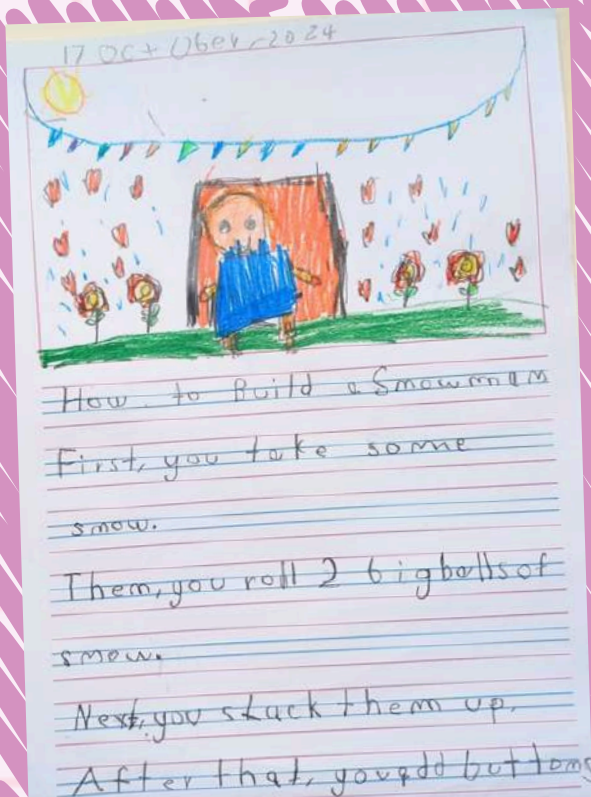 17 October, 2024
How to Build a Smowman
First, you take some
smow.
Them, you roll 2 big balls of
smow.
Next, you stack them up.
After that, you add buttoms